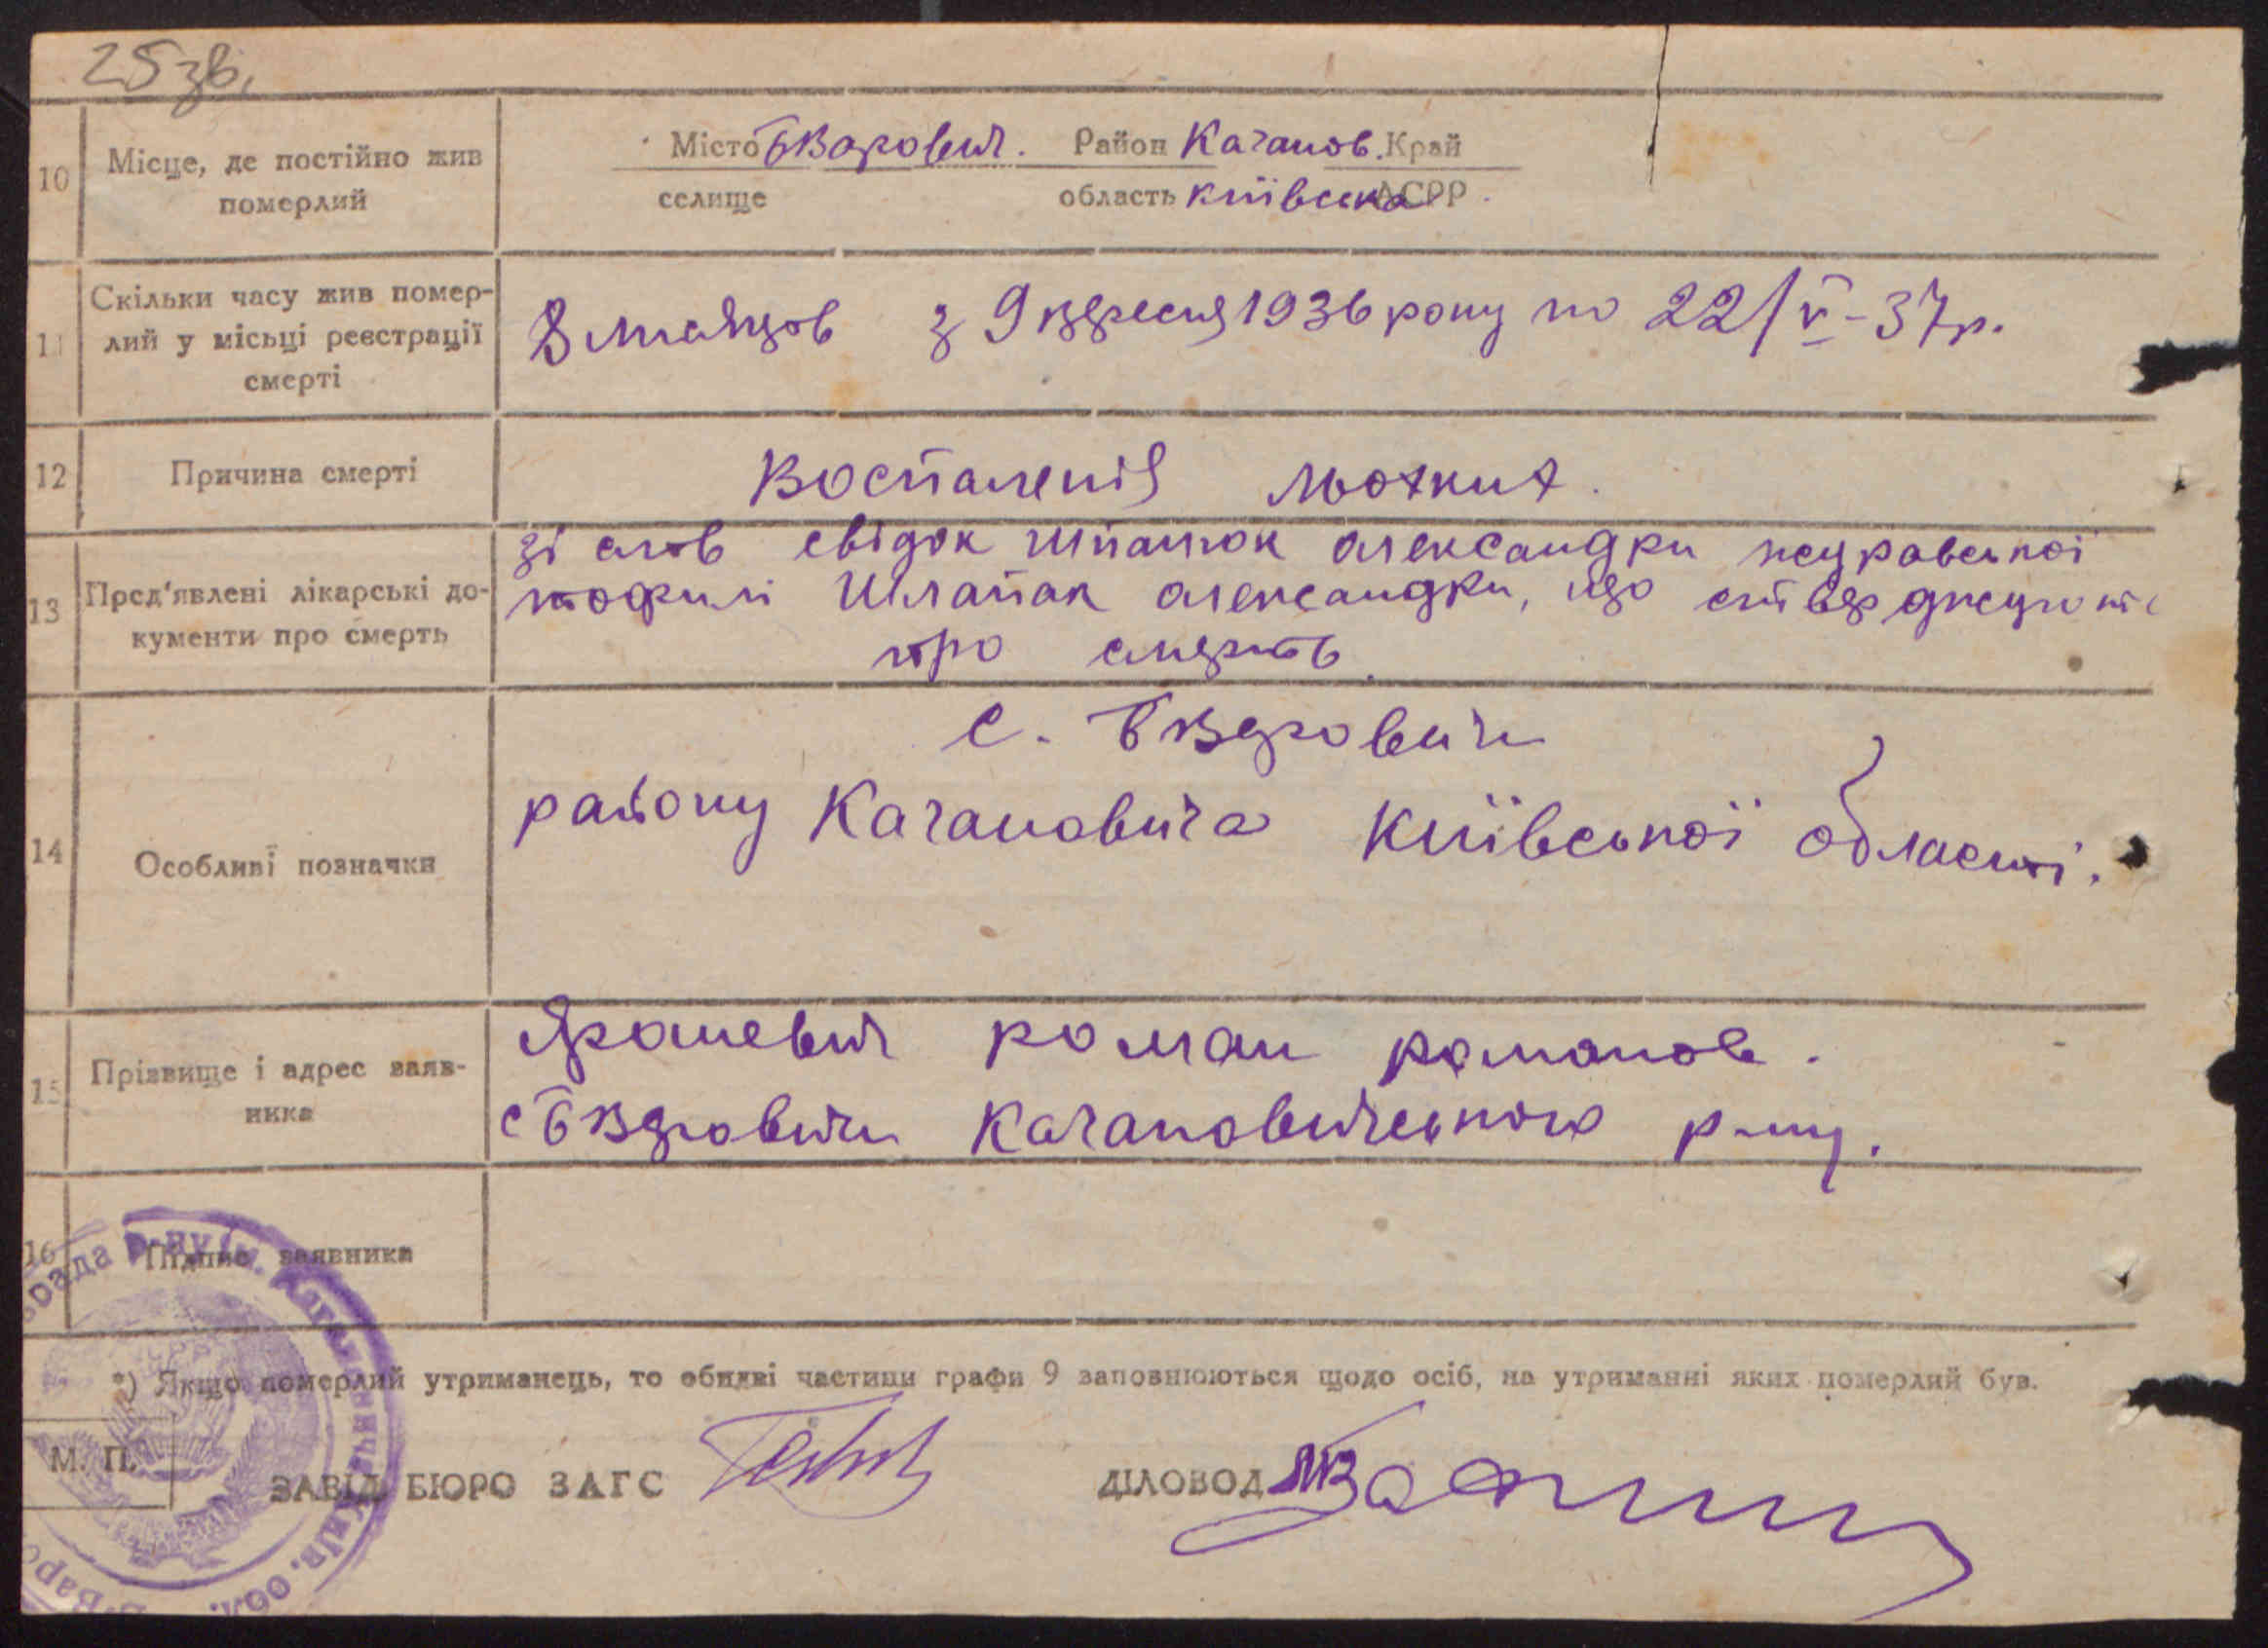 25 зв.
10 Місце, де постійно жив померлий
Місто Б Варович. Район Каганов. Край
селище область Київська АСРР.
11 Скільки часу жив помер-
лий у місьці реєстрації
смерті
8 місяцов з 9 вересня 1936 року по 22/V-37 р.
12 Причина смерті
Воспаленія льохких.
13 Пред'явлені лікарські до-
кументи про смерть
зі слов свідок александри
Шлапак александри, що стверджують
про смерть
14 Особливі позначки
с. Б Варовичи
району Кагановича Київської області.
15 Прізвище і адрес заяв-
ника
Ярошевич роман романов.
с Б Варовичи Кагановичського р-ну.
16 Підпис заявника
*) Якщо померлий утриманець, то обидві частини графи 9 заповнюються щодо осіб, на утриманні яких померлий був.
М. П.
ЗАВІД. БЮРО ЗАГС ДІЛОВОД
рада р-ну ім. Кагановича Київ. обл.